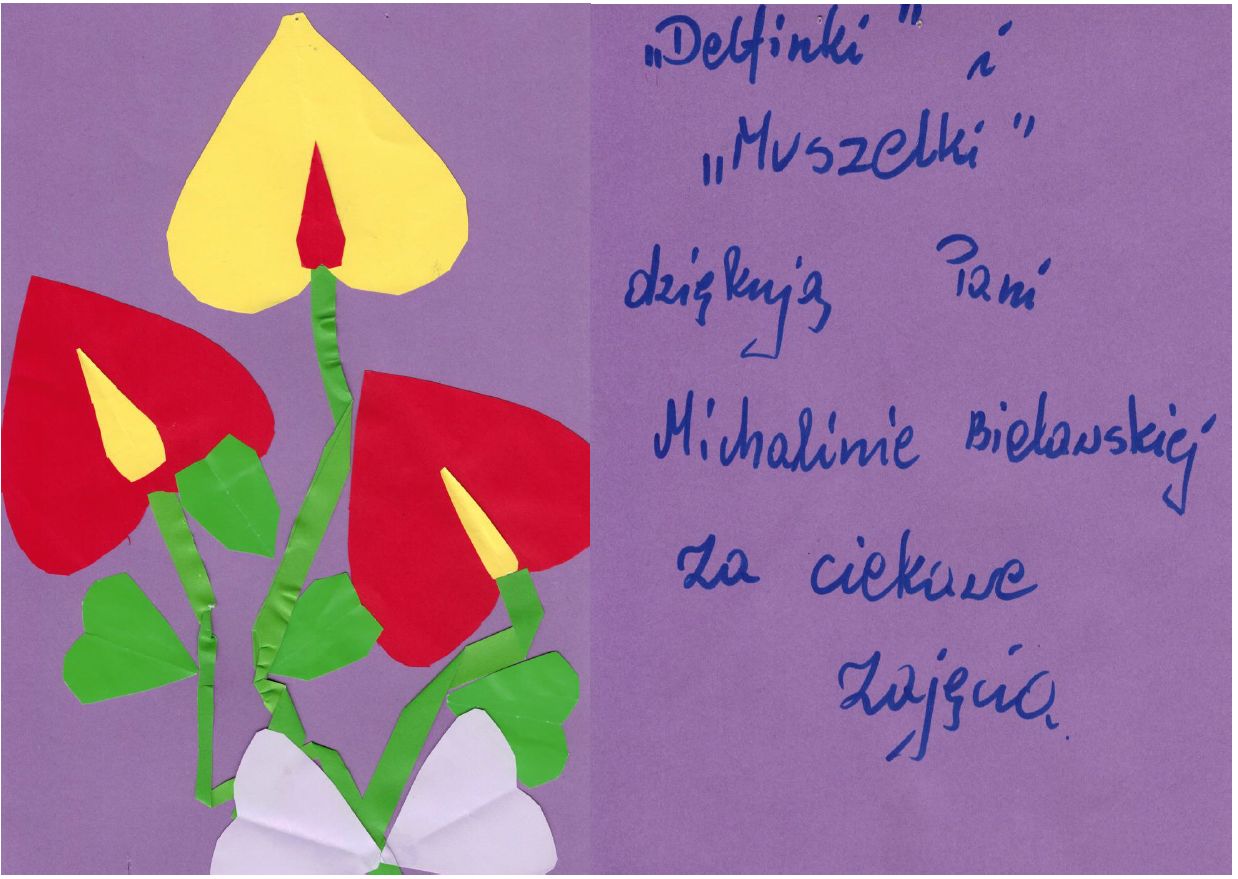 „Delfinki” i
„Muszelki”
dziękują Pani
Michalinie Bielawskiej
za ciekawe
zajęcia.